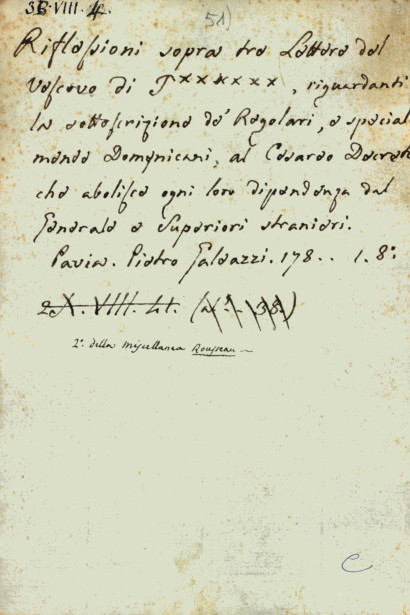 36.VIII.4.
51)
Riflessioni sopra tre Lettere del
Vescovo di T×××××××, riguardanti
la sottoscrizione de' Regolari, e special
mente Domenicani, al Cesareo Decreto
che abolisce ogni loro dipendenza dal
Generale e Superiori stranieri.
Pavia. Pietro Galeazzi. 178.. 1. 8:
VIII. 41.
2.ª della Miscellanea
C